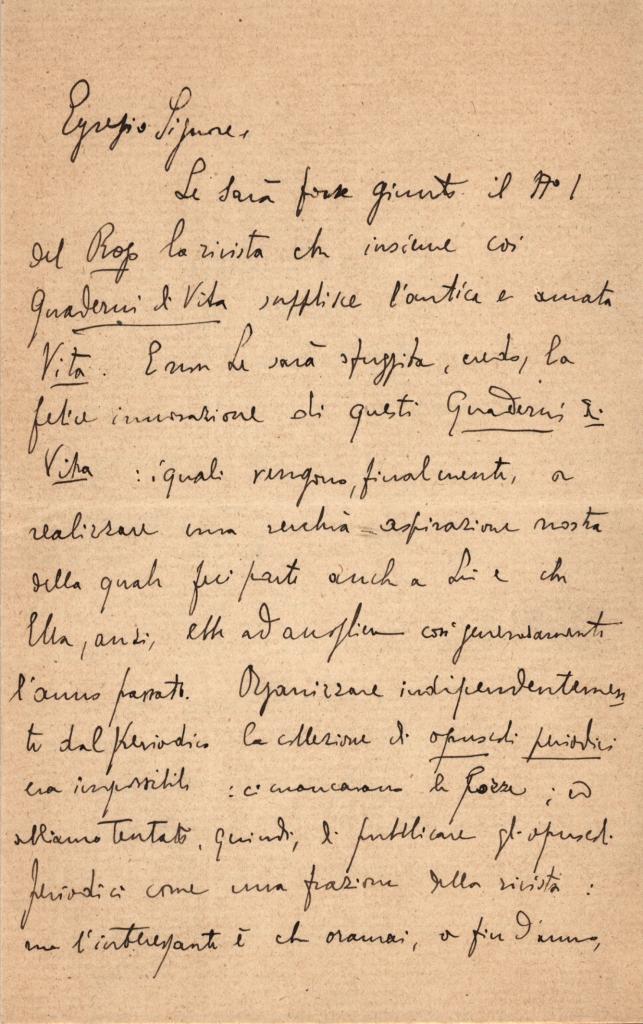 Egregio Signore,
Le sarà forse giunto il N° 1
del Rogo la rivista che insieme coi
Quaderni di Vita supplisce l'antica e amata
Vita. E non Le sarà sfuggita, credo, la
felice innovazione di questi Quaderni di
Vita : i quali vengono, finalmente, a
realizzare una vecchia aspirazione nostra
della quale feci parte anche a Lei e che
Ella, anzi, ebbe ad accogliere così generosamente
l'anno passato. Organizzare indipendentemen
te dal periodico la collezione di opuscoli periodici
era impossibile : ci mancavano le forze ; ed
abbiamo tentato, quindi, di pubblicare gli opuscoli
periodici come una frazione della rivista :
ma l'interessante è che oramai, a fin d'anno,